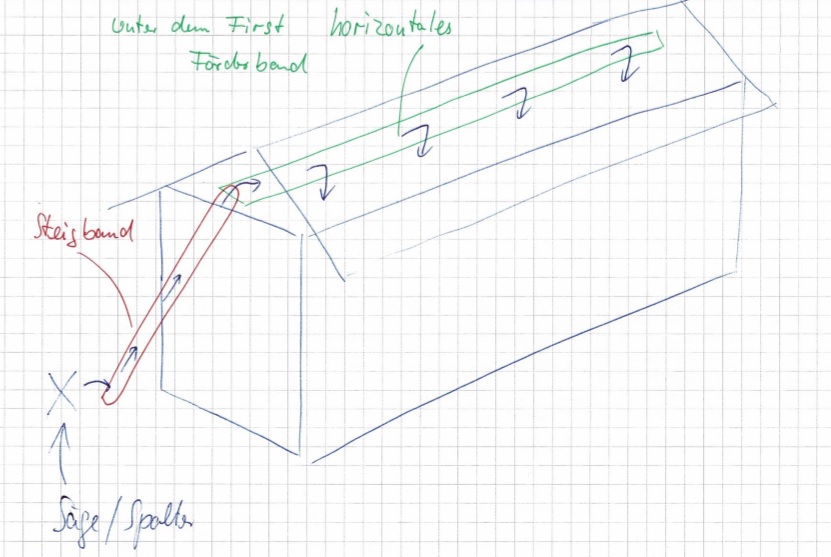 unter dem First horizontales
Förderband
Steigband
X
Säge/Spalter